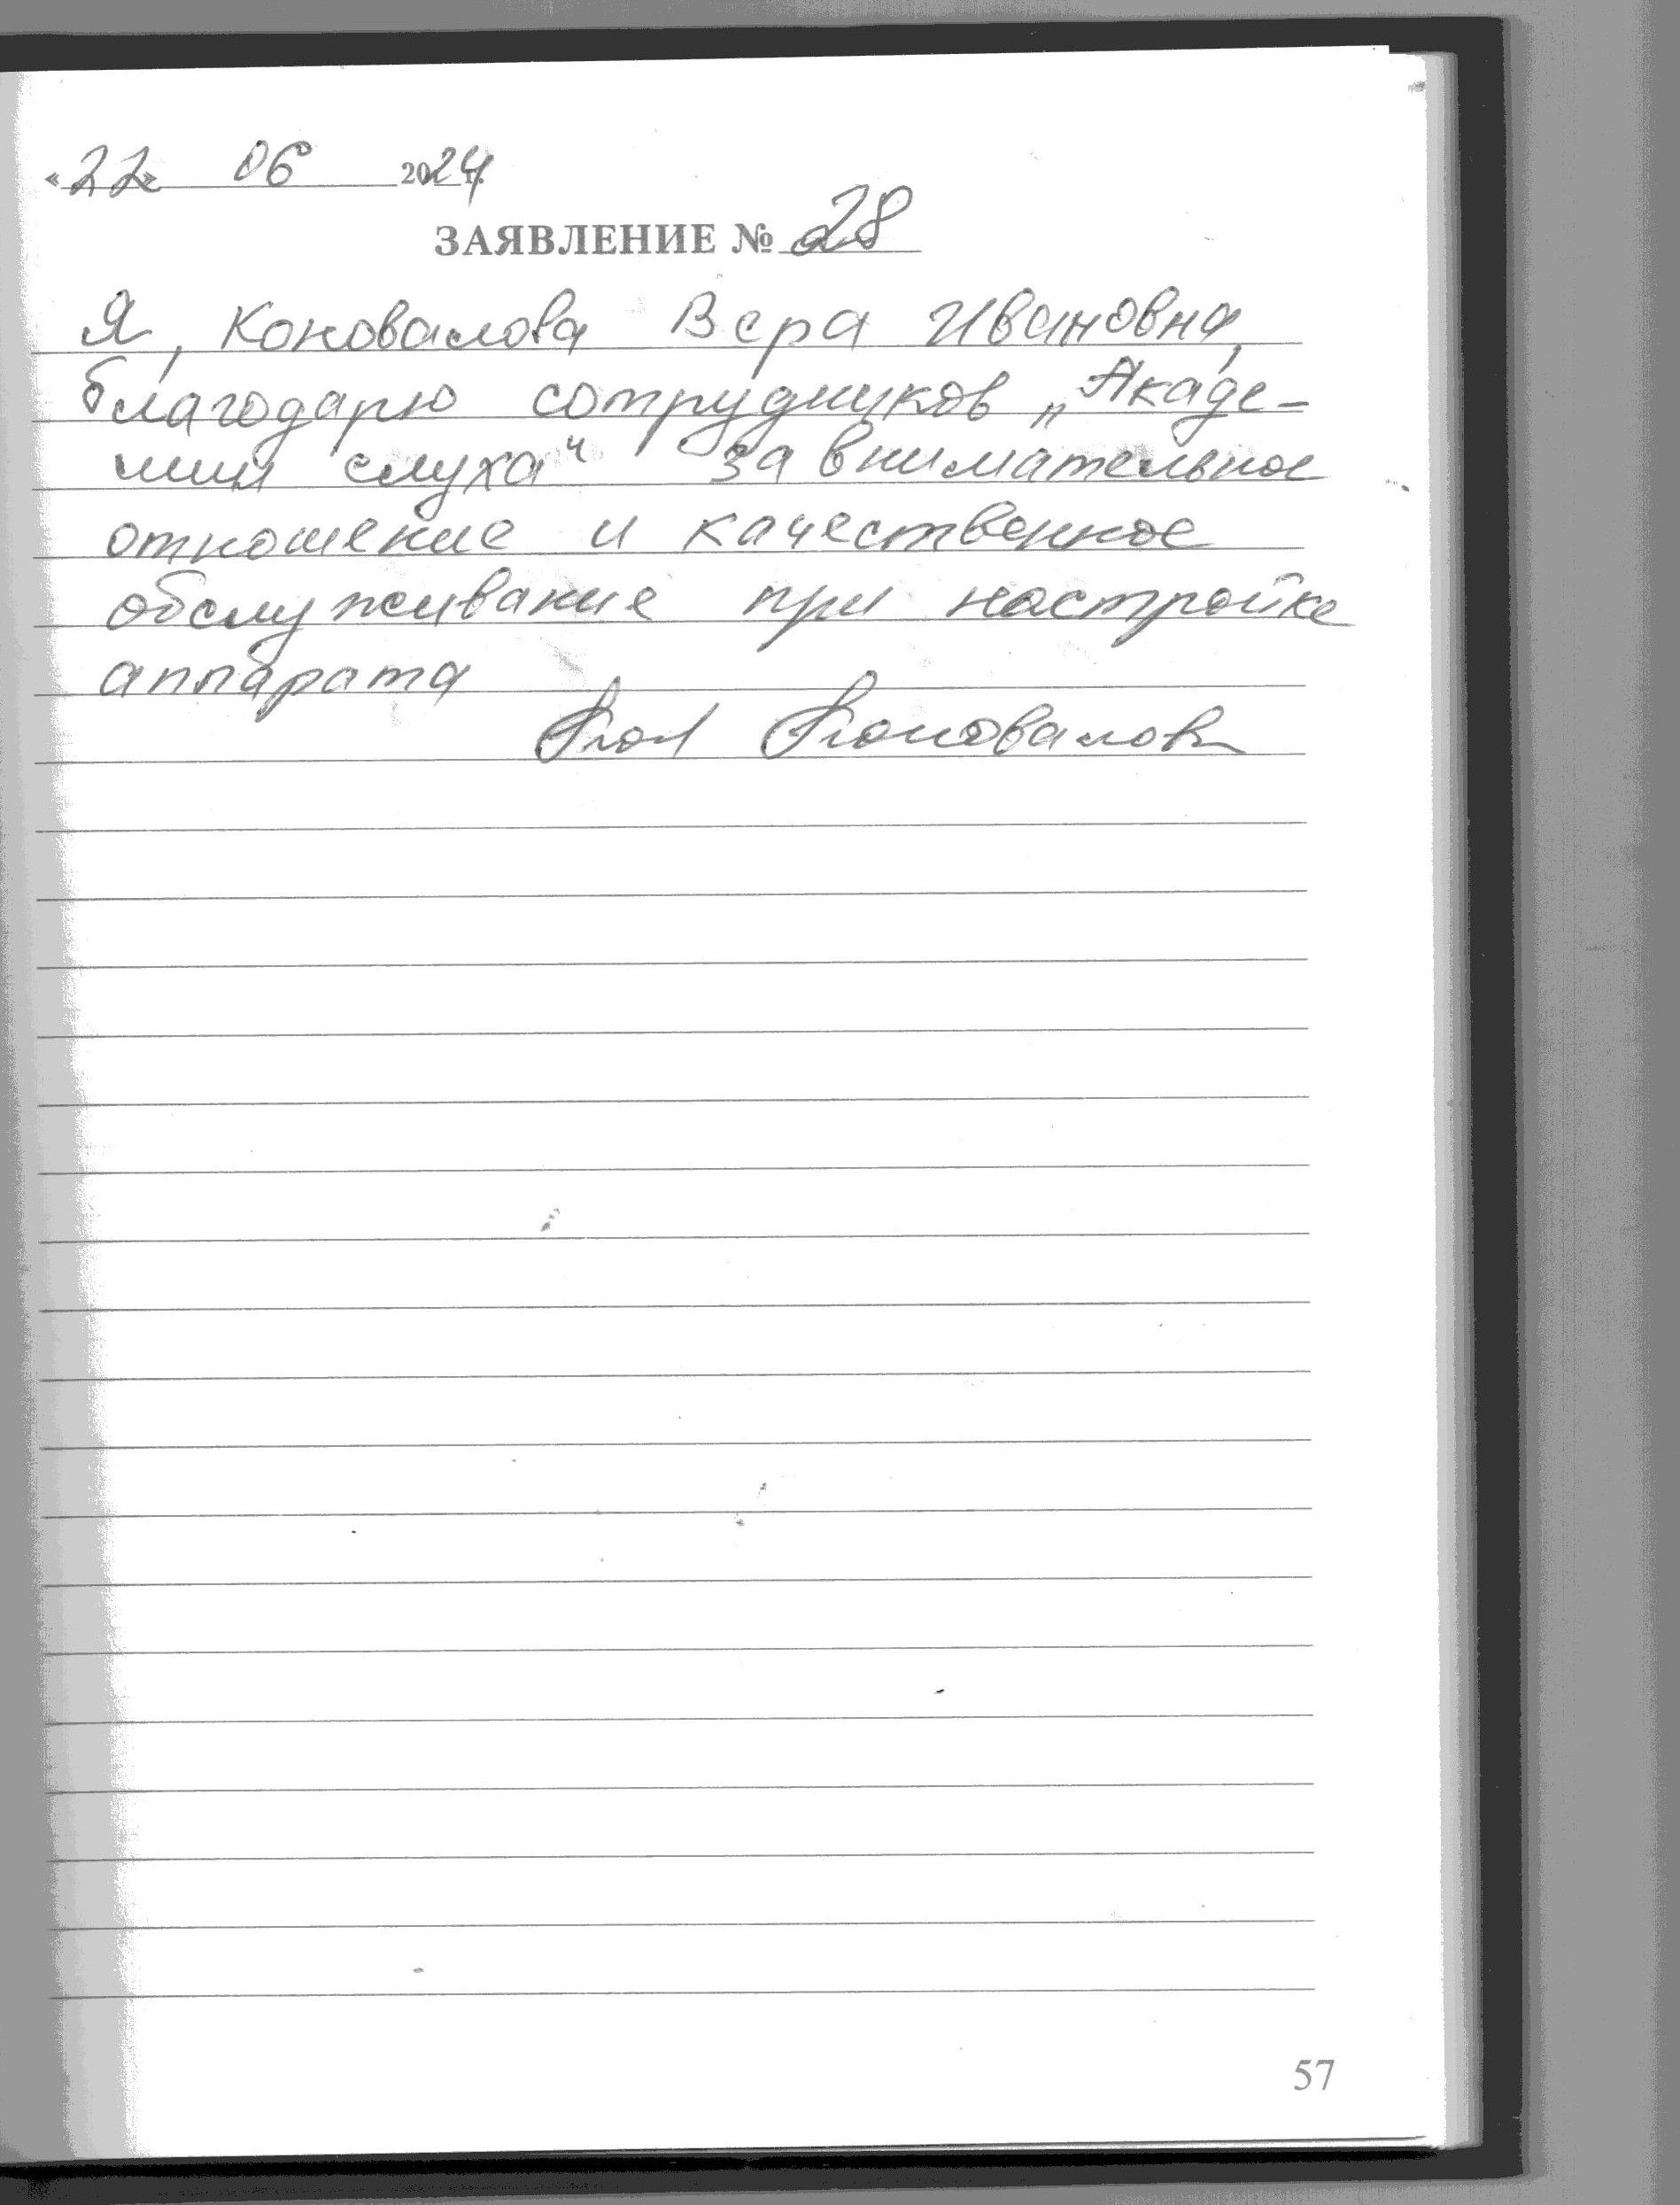 «22» 06 2024 г.
ЗАЯВЛЕНИЕ № 28
Я, Коновалова Вера Ивановна,
благодарю сотрудников „Акаде-
мия слуха“ за внимательное
отношение и качественное
обслуживание при настройке
аппарата
Коновалова
57